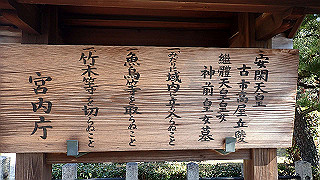 安閑天皇
古市高屋丘陵
継體天皇皇女
神前皇女墓
一、みだりに域内に立入らぬこと
一、魚鳥等を取らぬこと
一、竹木等を切らぬこと
宮内庁